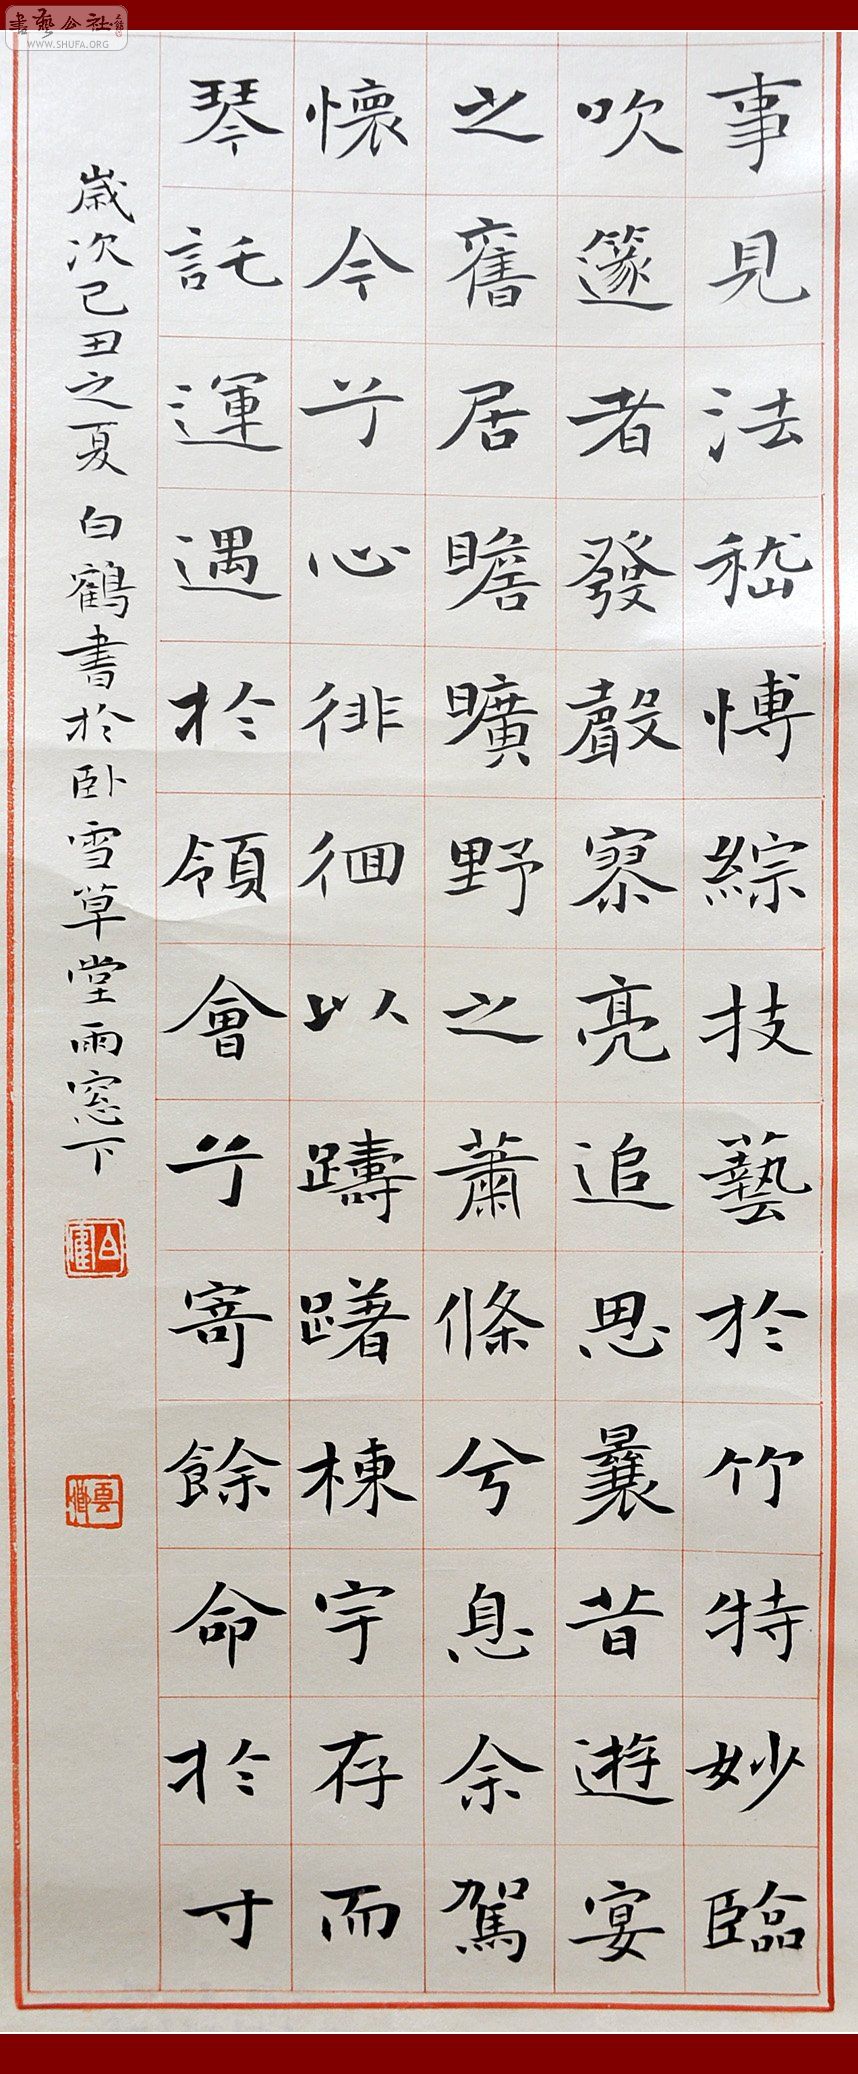 書藝公社
WWW.SHUFA.ORG
事見法嵇愽綜技藝於竹特妙臨
吹篴者發聲寥亮追思曩昔遊宴
之舊居瞻曠野之蕭條兮息余駕
懷今兮心徘徊以躊躇棟宇存而
琴託運遇於領會兮寄餘命於寸
歲次己丑之夏 白鶴書於卧雪草堂雨窓下